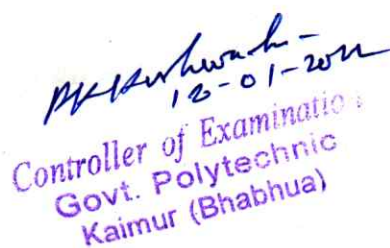 12-01-2022
Controller of Examination
Govt. Polytechnic
Kaimur (Bhabhua)